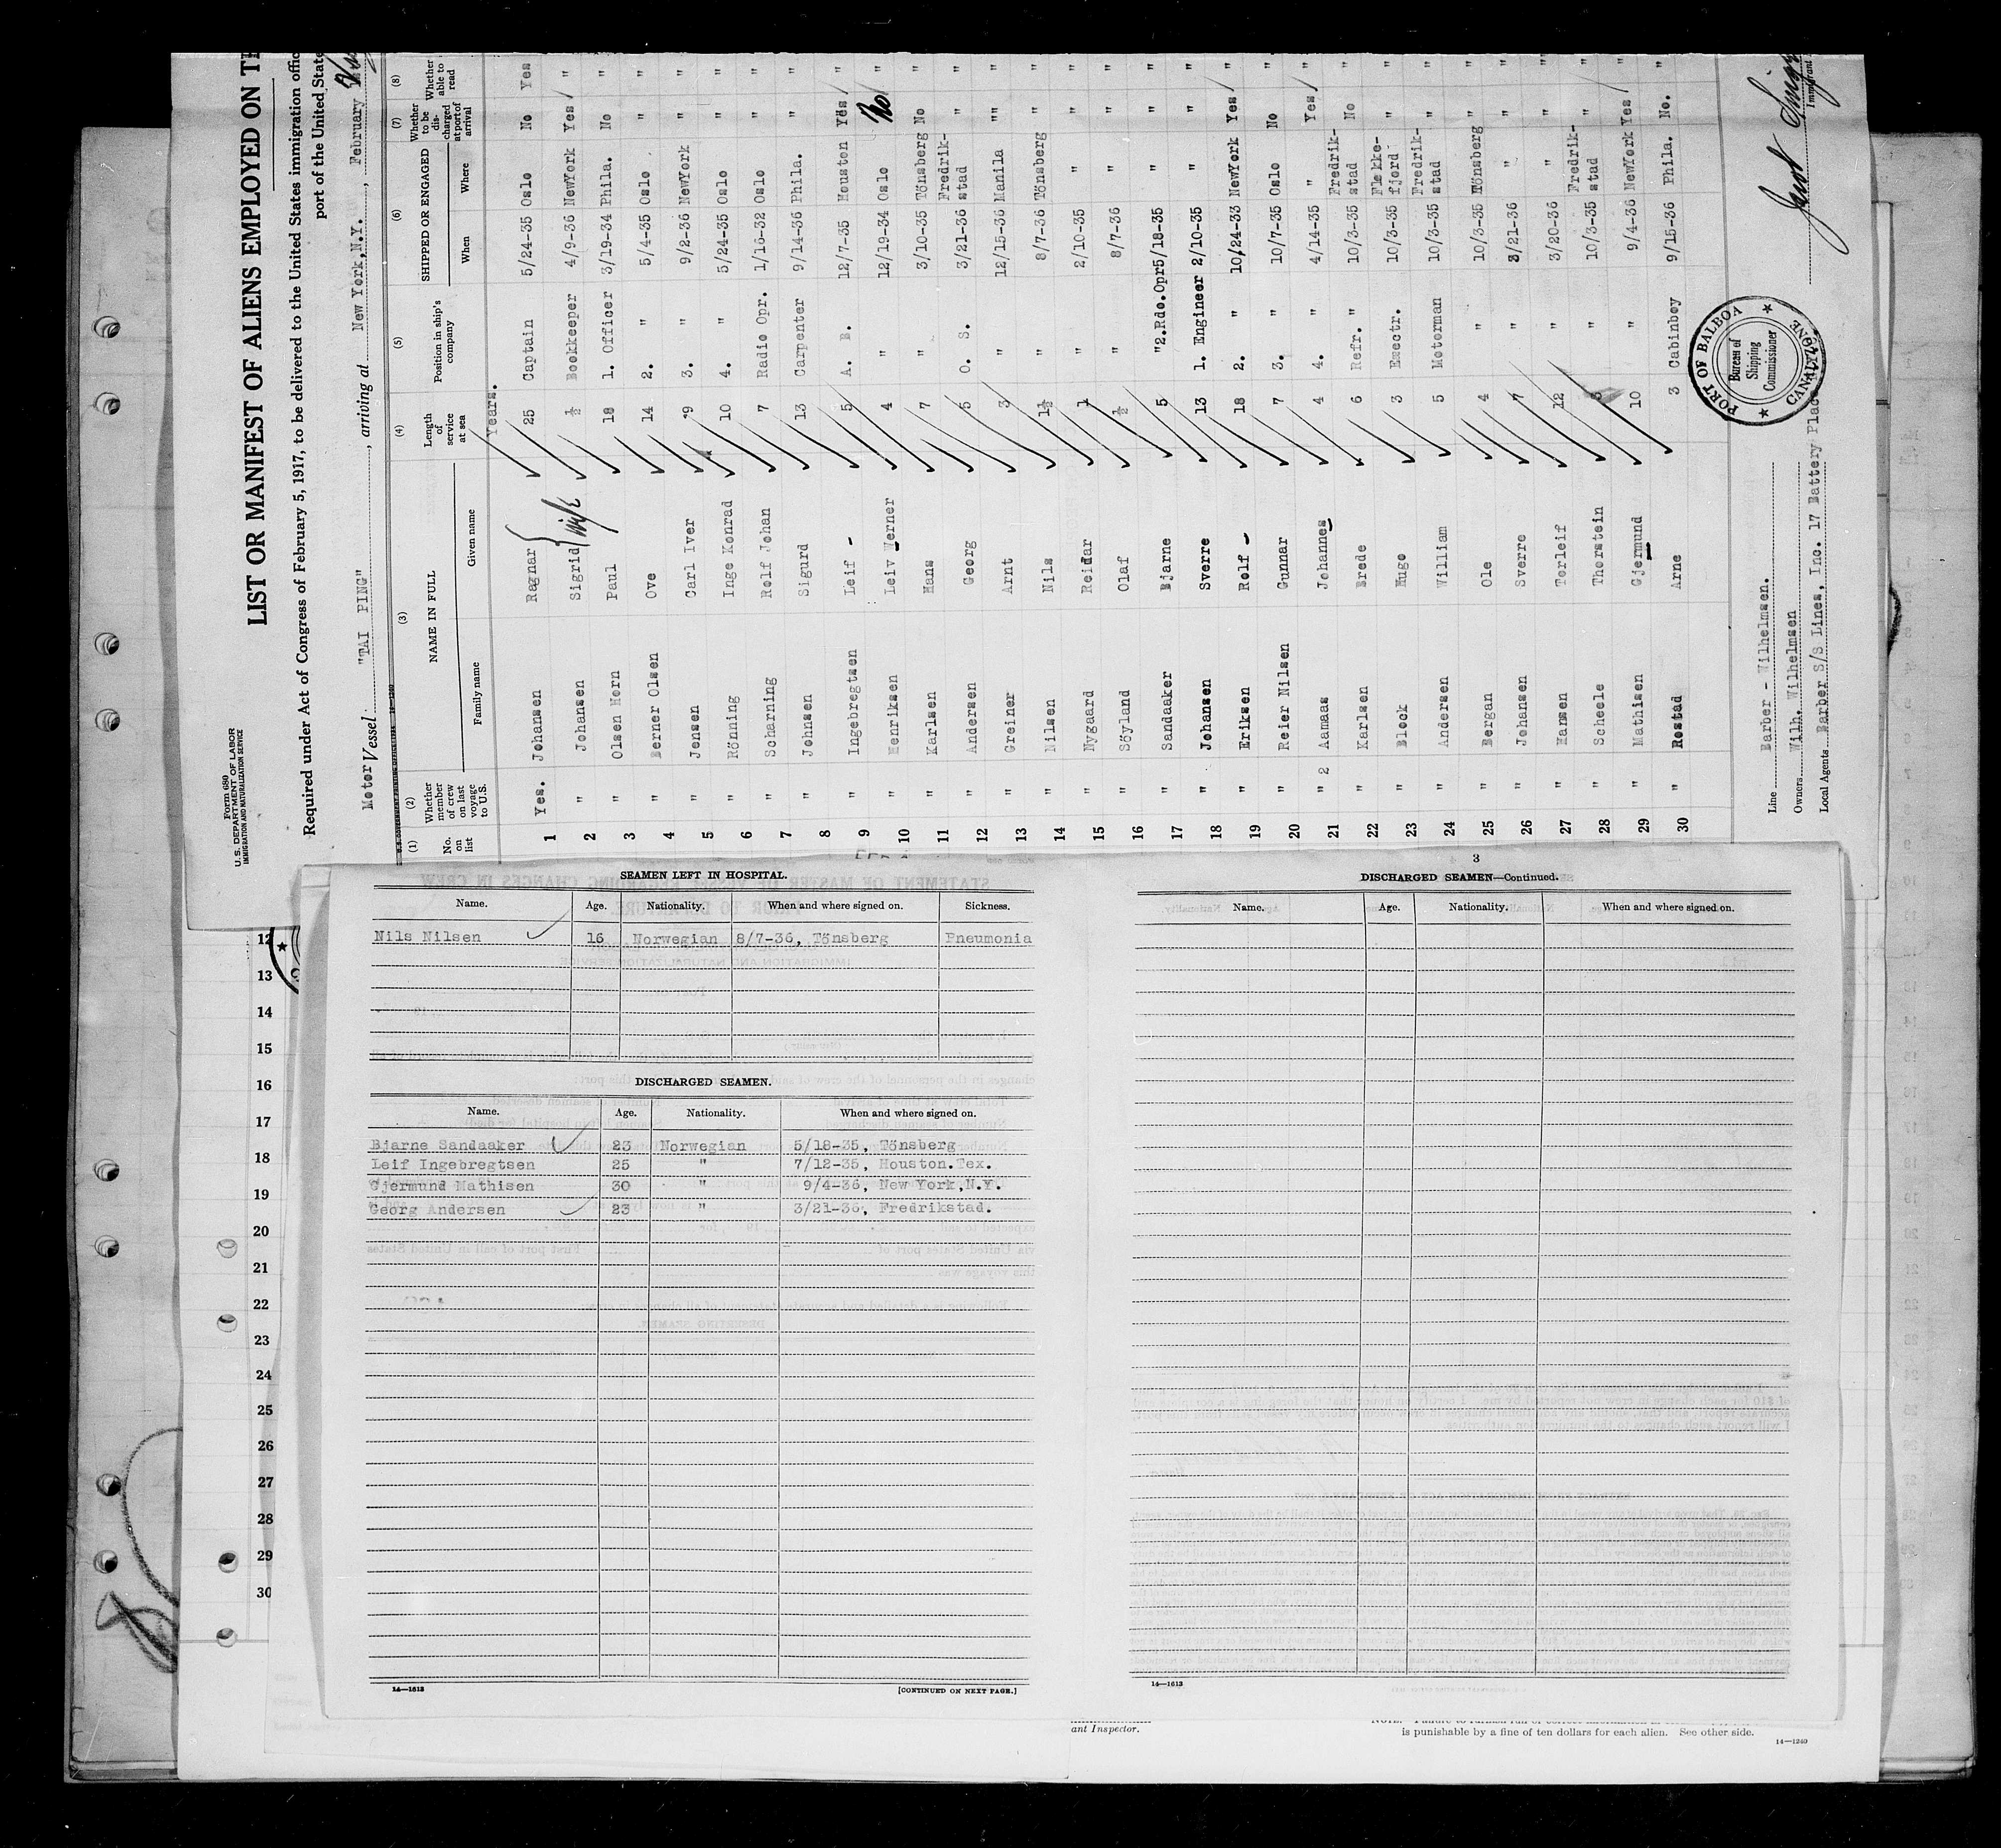 Form 680
U. S. DEPARTMENT OF LABOR
IMMIGRATION AND NATURALIZATION SERVICE
LIST OR MANIFEST OF ALIENS EMPLOYED ON
Required under Act of Congress of February 5, 1917, to be delivered to the United States immigration
port of the United
Motor Vessel "TAI PING", arriving at New York, N.Y., February
(1) (2) (3) (4) (5) (6) (7) (8)
No. on list Whether member of crew on last voyage to U.S. NAME IN FULL Length of service at sea Position in ship's company SHIPPED OR ENGAGED Whether to be discharged at port of arrival Whether able to read
Family name Given name When Where
Years.
1 Yes. Johansen Ragnar 25 Captain 5/24-35 Oslo No Yes
2 " Johansen Sigrid wife ½ Bookkeeper 4/9-36 NewYork Yes "
3 " Olsen Horn Paul 18 1. Officer 3/19-34 Phila. No "
4 " Berner Olsen Ove 14 2. " 5/4-35 Oslo " "
5 " Jensen Carl Iver 9 3. " 9/2-36 NewYork " "
6 " Rönning Inge Konrad 10 4. " 5/24-35 Oslo " "
7 " Scharning Rolf Johan 7 Radio Opr. 1/16-32 Oslo " "
8 " Johnsen Sigurd 13 Carpenter 9/14-36 Phila. " "
9 " Ingebregtsen Leif 5 A. B. 12/7-35 Houston Yes "
10 " Henriksen Leiv Werner 4 " 12/19-34 Oslo No "
11 " Karlsen Hans 7 " 3/10-35 Tönsberg No "
12 " Andersen Georg 5 O. S. 3/21-36 Fredrik-stad " "
13 " Greiner Arnt 3 " 12/15-36 Manila "" "
14 " Nilsen Nils 1½ " 8/7-36 Tönsberg " "
15 " Nygaard Reidar 1 " 2/10-35 " " "
16 " Söyland Olaf ½ " 8/7-36 " " "
17 " Sandaaker Bjarne 5 "2.Rdo.Opr 5/18-35 " " "
18 " Johansen Sverre 13 1. Engineer 2/10-35 " " "
19 " Eriksen Rolf 18 2. " 10/24-33 NewYork Yes "
20 " Reier Nilsen Gunnar 7 3. " 10/7-35 Oslo No "
21 " 2 Aamaas Johannes 4 4. " 4/14-35 " Yes "
22 " Karlsen Brede 6 Refr. " 10/3-35 Fredrik-stad No "
23 " Block Hugo 3 Eeectr. 10/3-35 Flekke-fjord " "
24 " Andersen William 5 Motorman 10/3-35 Fredrik-stad " "
25 " Bergan Ole 4 " 10/3-35 Tönsberg " "
26 " Johansen Sverre 7 " 3/21-36 " " "
27 " Hansen Torleif 12 " 3/20-36 " " "
28 " Scheele Thorstein " 10/3-35 Fredrik-stad " "
29 " Mathisen Gjermund 10 " 9/4-36 NewYork Yes "
30 " Rostad Arne 3 Cabinboy 9/15-36 Phila. No. "
Line Barber - Wilhelmsen.
Owners Wilh. Wilhelmsen
Local Agents Barber S/S Lines, Inc. 17 Battery Place
PORT OF BALBOA
Bureau of Shipping Commissioner
CANAL ZONE
SEAMEN LEFT IN HOSPITAL.
Name. Age. Nationality. When and where signed on. Sickness.
Nils Nilsen 16 Norwegian 8/7-36, Tönsberg Pneumonia
DISCHARGED SEAMEN.
Name. Age. Nationality. When and where signed on.
Bjarne Sandaaker 23 Norwegian 5/18-35, Tönsberg
Leif Ingebregtsen 25 " 7/12-35, Houston.Tex.
Gjermund Mathisen 30 " 9/4-36, New York,N.Y.
Georg Andersen 23 " 3/21-36, Fredrikstad.
14—1613
[CONTINUED ON NEXT PAGE.]
3
DISCHARGED SEAMEN—Continued.
Name. Age. Nationality. When and where signed on.
14—1613
12
13
14
15
16
17
18
19
20
21
22
23
24
25
26
27
28
29
30
ant Inspector.
is punishable by a fine of ten dollars for each alien. See other side.
14—1240